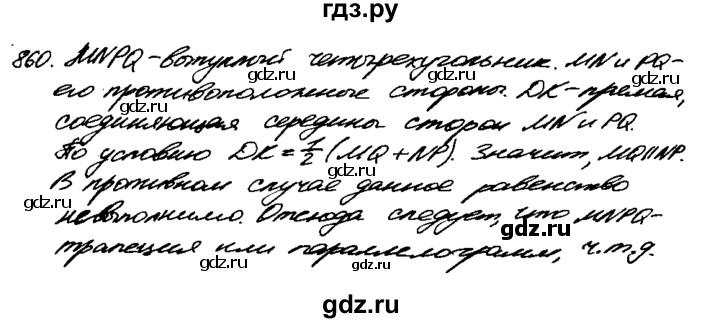 гдз.ру
860. MNPQ-выпуклый четырехугольник. MN и PQ-
его противоположные стороны. DK-прямая,
соединяющая середины сторон MN и PQ.
По условию DK=1/2(MQ+NP). Значит, MQ||NP.
В противном случае данное равенство
невыполнимо. Отсюда следует, что MNPQ-
трапеция или параллелограмм, ч.т.д.
gdz.ru
gdz.ru
gdz.ru
gdz.ru
gdz.ru
gdz.ru
gdz.ru
gdz.ru
gdz.ru
gdz.ru
gdz.ru